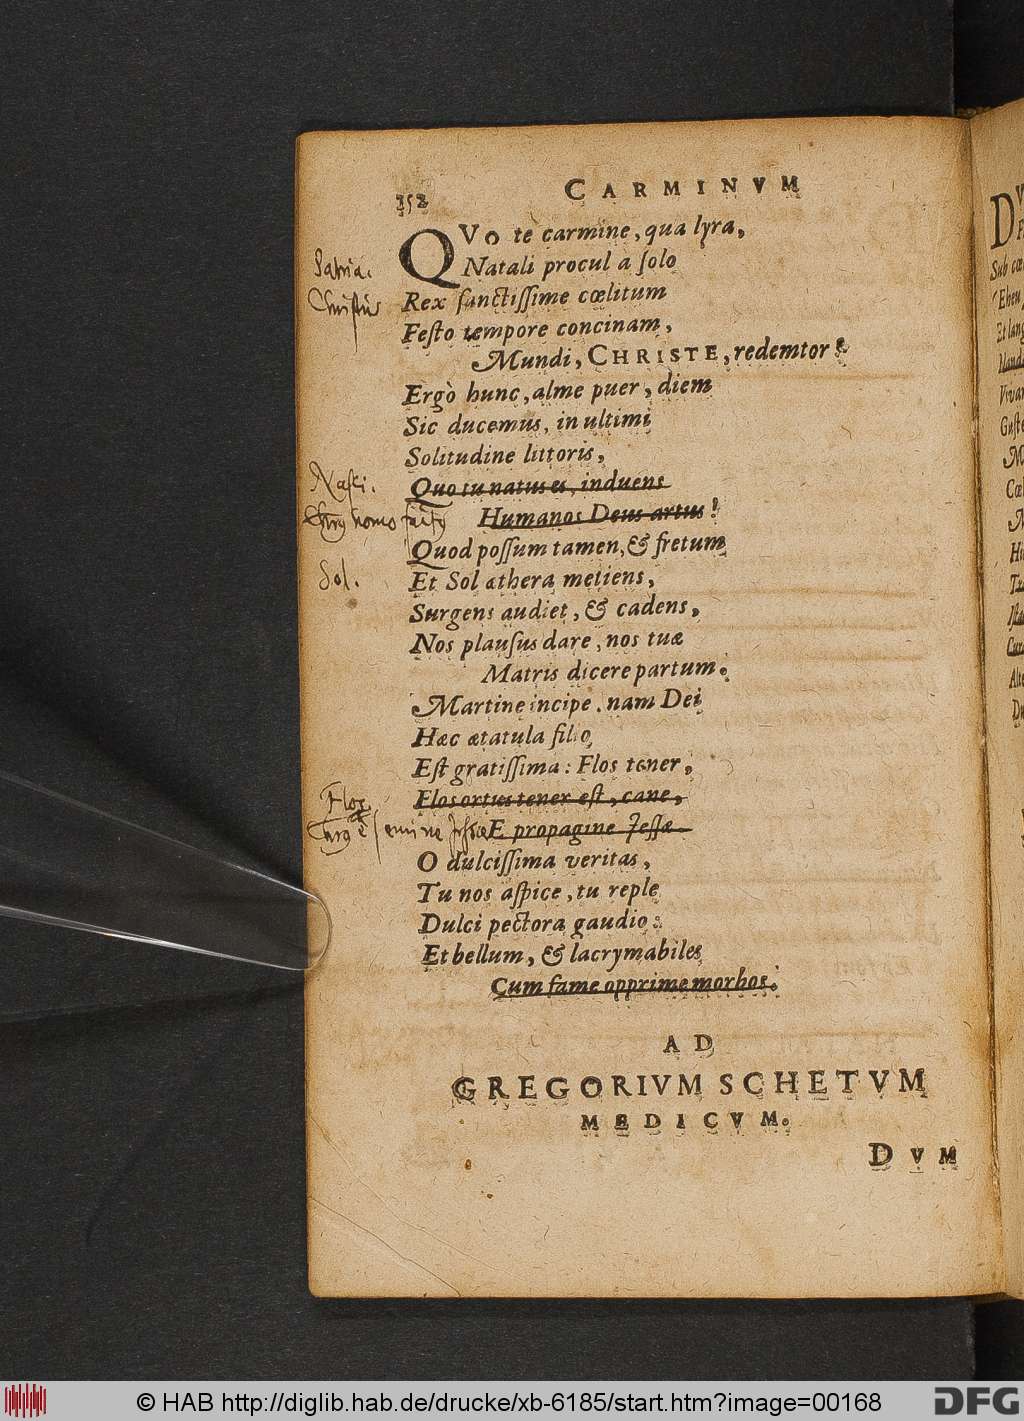 152 CARMINVM
QVo te carmine, qua lyra,
Natali procul a solo
Patria.
Rex sanctissime cœlitum
Christus
Festo tempore concinam,
Mundi, CHRISTE, redemtor?
Ergò hunc, alme puer, diem
Sic ducemus, in ultimi
Solitudine littoris,
Nasci.
Quo tu natus es, induens
homo
Humanos Deus artus!
Quod possum tamen, & fretum
Sol.
Et Sol æthera metiens,
Surgens audiet, & cadens,
Nos plausus dare, nos tuæ
Matris dicere partum.
Martine incipe, nam Dei
Hæc ætatula filio,
Est gratissima: Flos tener,
Flos
Flos ortus tener est, cane,
è semine
E propagine Jessæ.
O dulcissima veritas,
Tu nos aspice, tu reple
Dulci pectora gaudio:
Et bellum, & lacrymabiles
Cum fame opprime morbos.
AD
GREGORIVM SCHETVM
MEDICVM.
DVM
© HAB http://diglib.hab.de/drucke/xb-6185/start.htm?image=00168
DFG